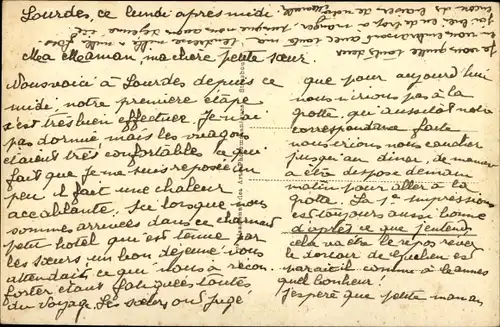 Lourdes, ce lundi après midi
Ma Maman, ma chère petite sœur.
Nous voici à Lourdes depuis ce
midi, notre première étape
s'est très bien effectuer. Je n'ai
pas dormie mais les wagons
étaient très confortables ce qui
fait que je me suis reposée un
peu il fait une chaleur
accablante. Ici lorsque nous
sommes arrivées dans ce charmant
petit hotel qui est tenue par
les sœurs un bon déjeuné nous
attendait ce qui nous a récon-
forter étant fatiguées toutes
du voyage. Les sœurs ont jugé
que pour aujourd'hui
nous n'irions pas à la
grotte, qui aussitôt notre
correspondance faite
nous irions nous coucher
jusqu'au diner, de manière
a être dispose demain
matin pour aller à la
grotte. La 1e impressions
est toujours aussi bonne
d'après ce que j'entends
cela va être le repos rêver
le dortoir de
parait-il comme à
quel bonheur!
J'espère que petite maman
je vous quitte toutes deux
en vous embrassant avec toute ma tendresse mille à mille fois